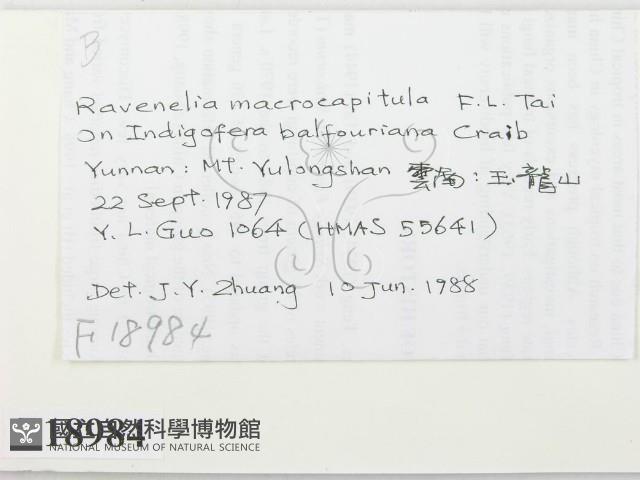 B
Ravenelia macrocapitula F.L. Tai
on Indigofera balfouriana Craib
Yunnan: Mt. Yulongshan 雲南: 玉龍山
22 Sept. 1987
Y. L. Guo 1064 (HMAS 55641)
Det. J.Y. Zhuang 10 Jun. 1988
F18984
18984
國立自然科學博物館
NATIONAL MUSEUM OF NATURAL SCIENCE